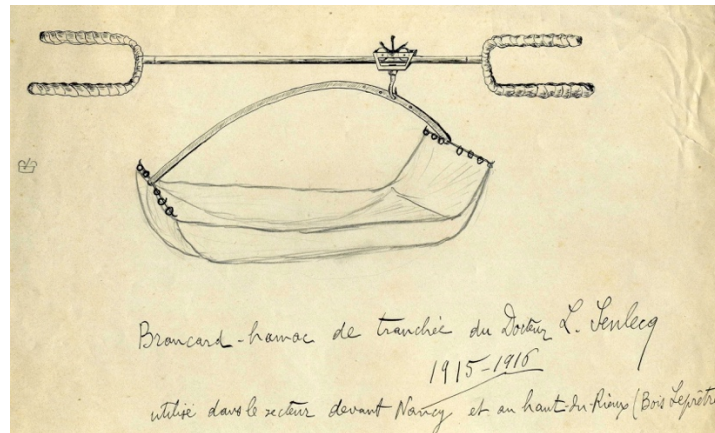 Brancard-hamac de tranchée du Docteur L. Senlecq
1915-1916
utilisé dans le secteur devant Nancy et au haut-du-Rieux (Bois Leprêtre